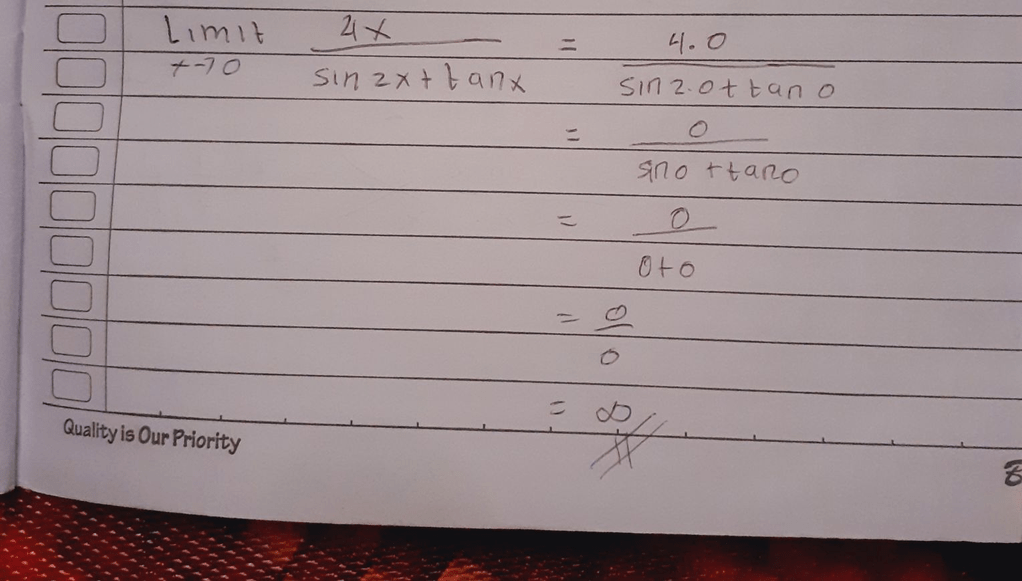 Limit 4x = 4.0
x→0 sin 2x + tan x sin 2.0 + tan 0
= 0
sin 0 + tan 0
= 0
0 + 0
= 0
0
= ∞
Quality is Our Priority